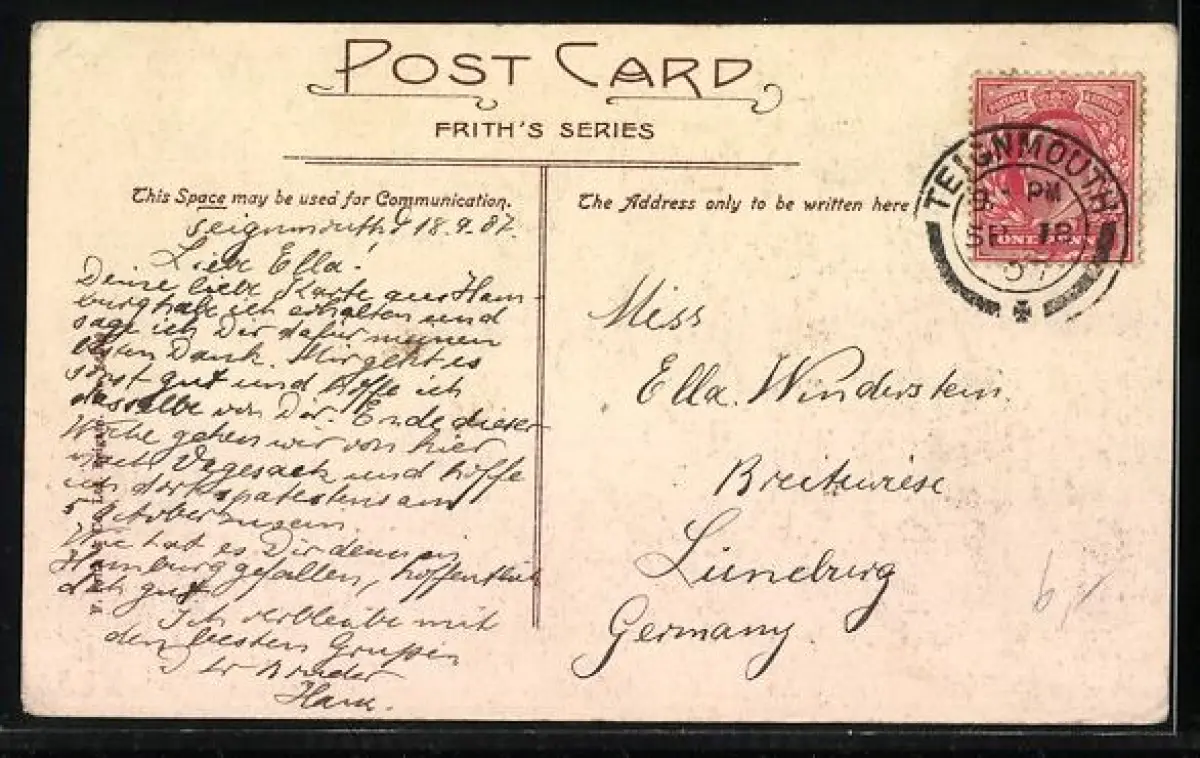 POST CARD
FRITH'S SERIES
This Space may be used for Communication.
Teignmouth, 18.9.07.
Liebe Ella!
Deine liebe Karte aus Ham-
burg habe ich erhalten und
sage ich Dir dafür meinen
besten Dank. Mir geht es
sonst gut und hoffe ich
dasselbe von Dir. Ende dieser
Woche gehen wir von hier
nach Vegesack und hoffe
ich dort spätestens am
5 October zu sein.
Wie hat es Dir denn in
Hamburg gefallen, hoffentlich
doch gut
Ich verbleibe mit
den besten Grüßen
Dein Bruder
Hans.
The Address only to be written here
Miss
Ella Winderstein
Breitewiese
Lüneburg
Germany.
TEIGNMOUTH
PM
SP 18
07
ONE PENNY